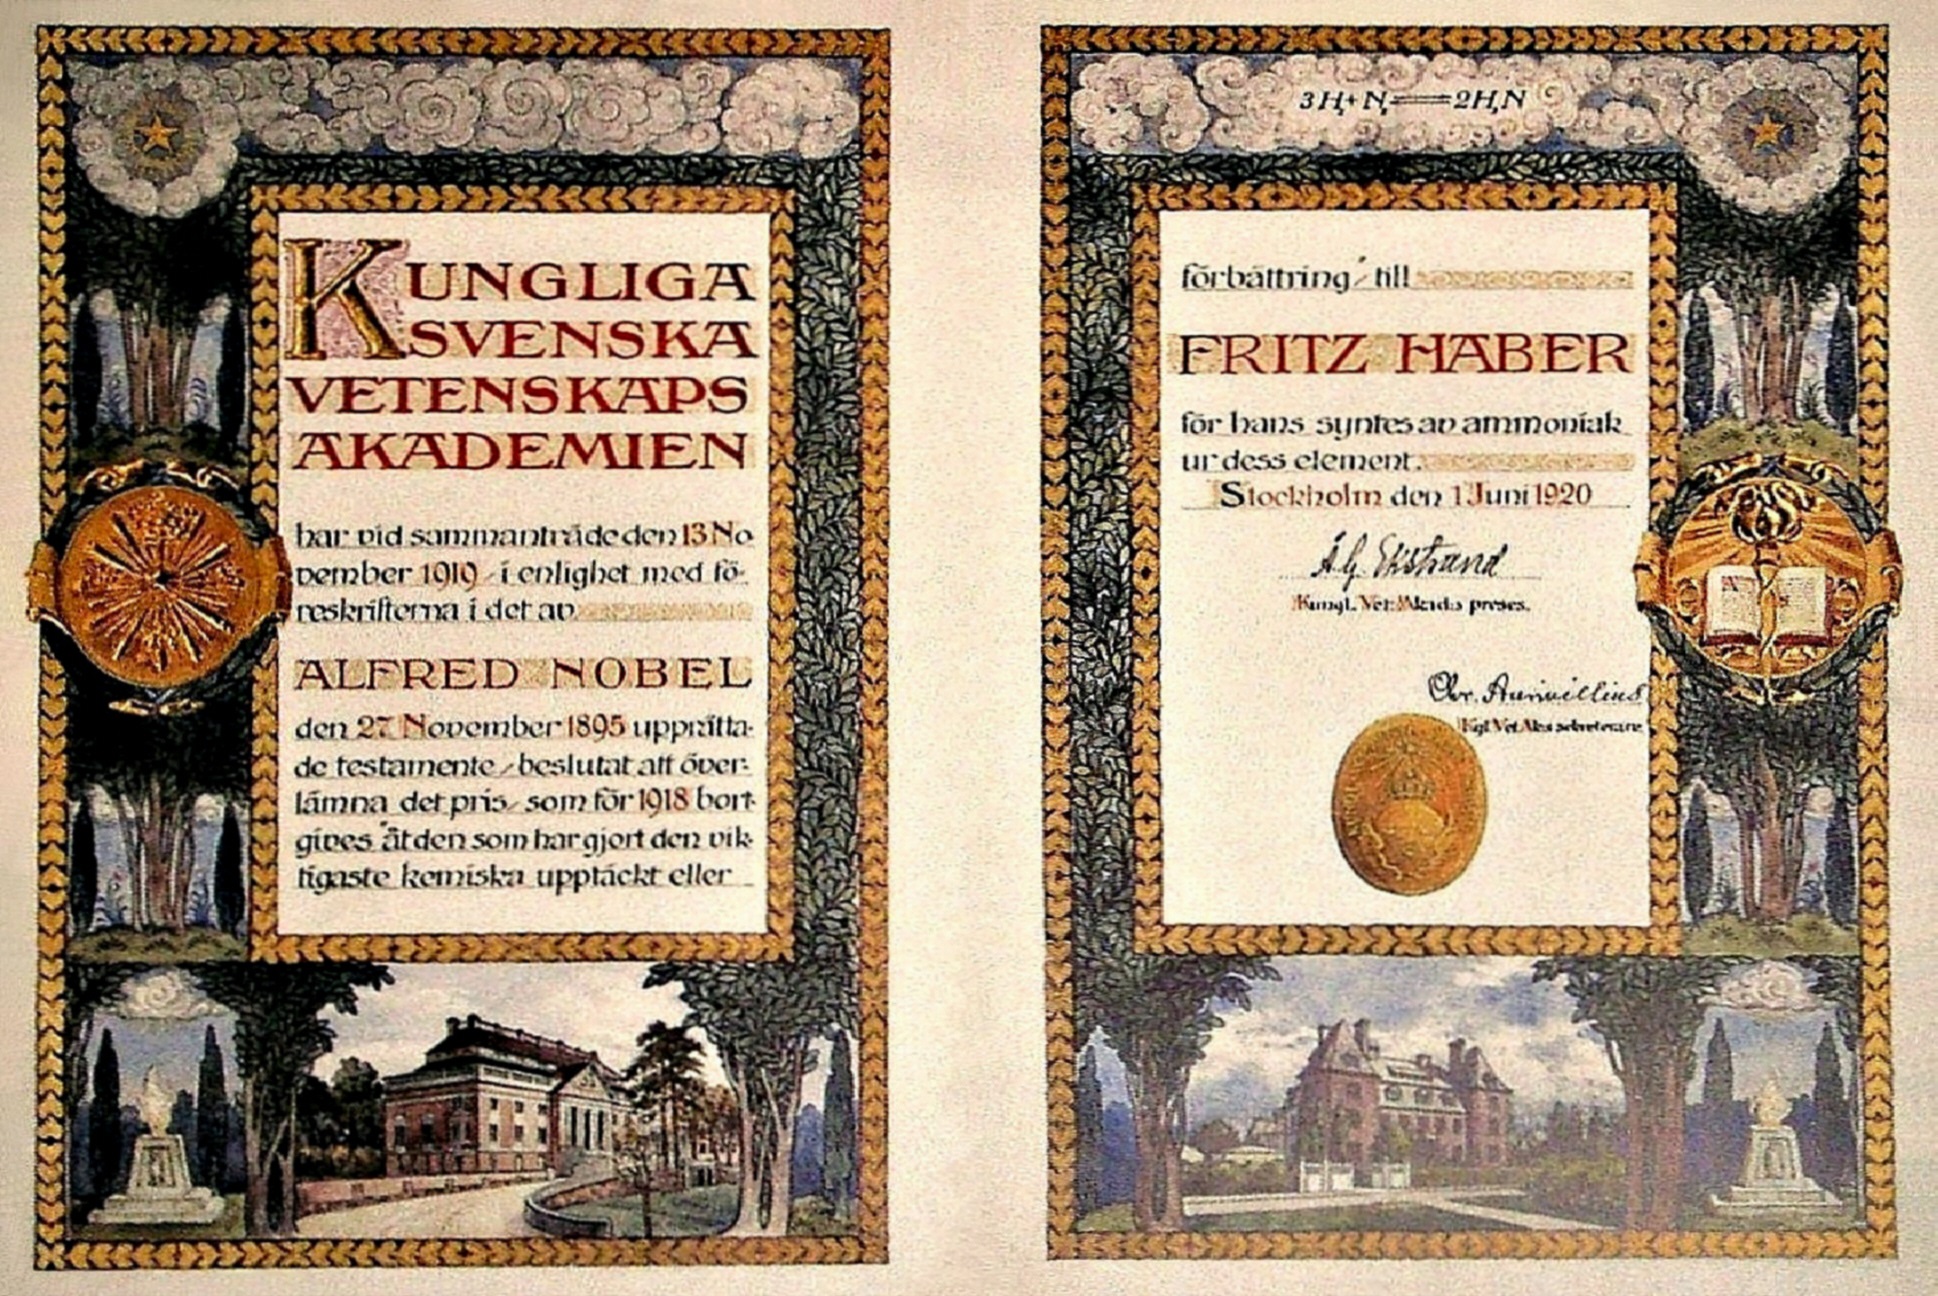 KUNGLIGA
SVENSKA
VETENSKAPS
AKADEMIEN
har vid sammanträde den 13 No
vember 1919 i enlighet med fö-
reskrifterna i det av
ALFRED NOBEL
den 27 November 1895 upprätta-
de testamente beslutat att över-
lämna det pris som för 1918 bort-
gives åt den som har gjort den vik-
tigaste kemiska upptäckt eller
3H₂+N₂══2H₃N
förbättring till
FRITZ HABER
för hans syntes av ammoniak
ur dess element.
Stockholm den 1 Juni 1920
Å.G. Ekstrand
Kungl. Vet. Akad:s preses.
Chr. Aurivillius
Kgl Vet Aks sekreterare